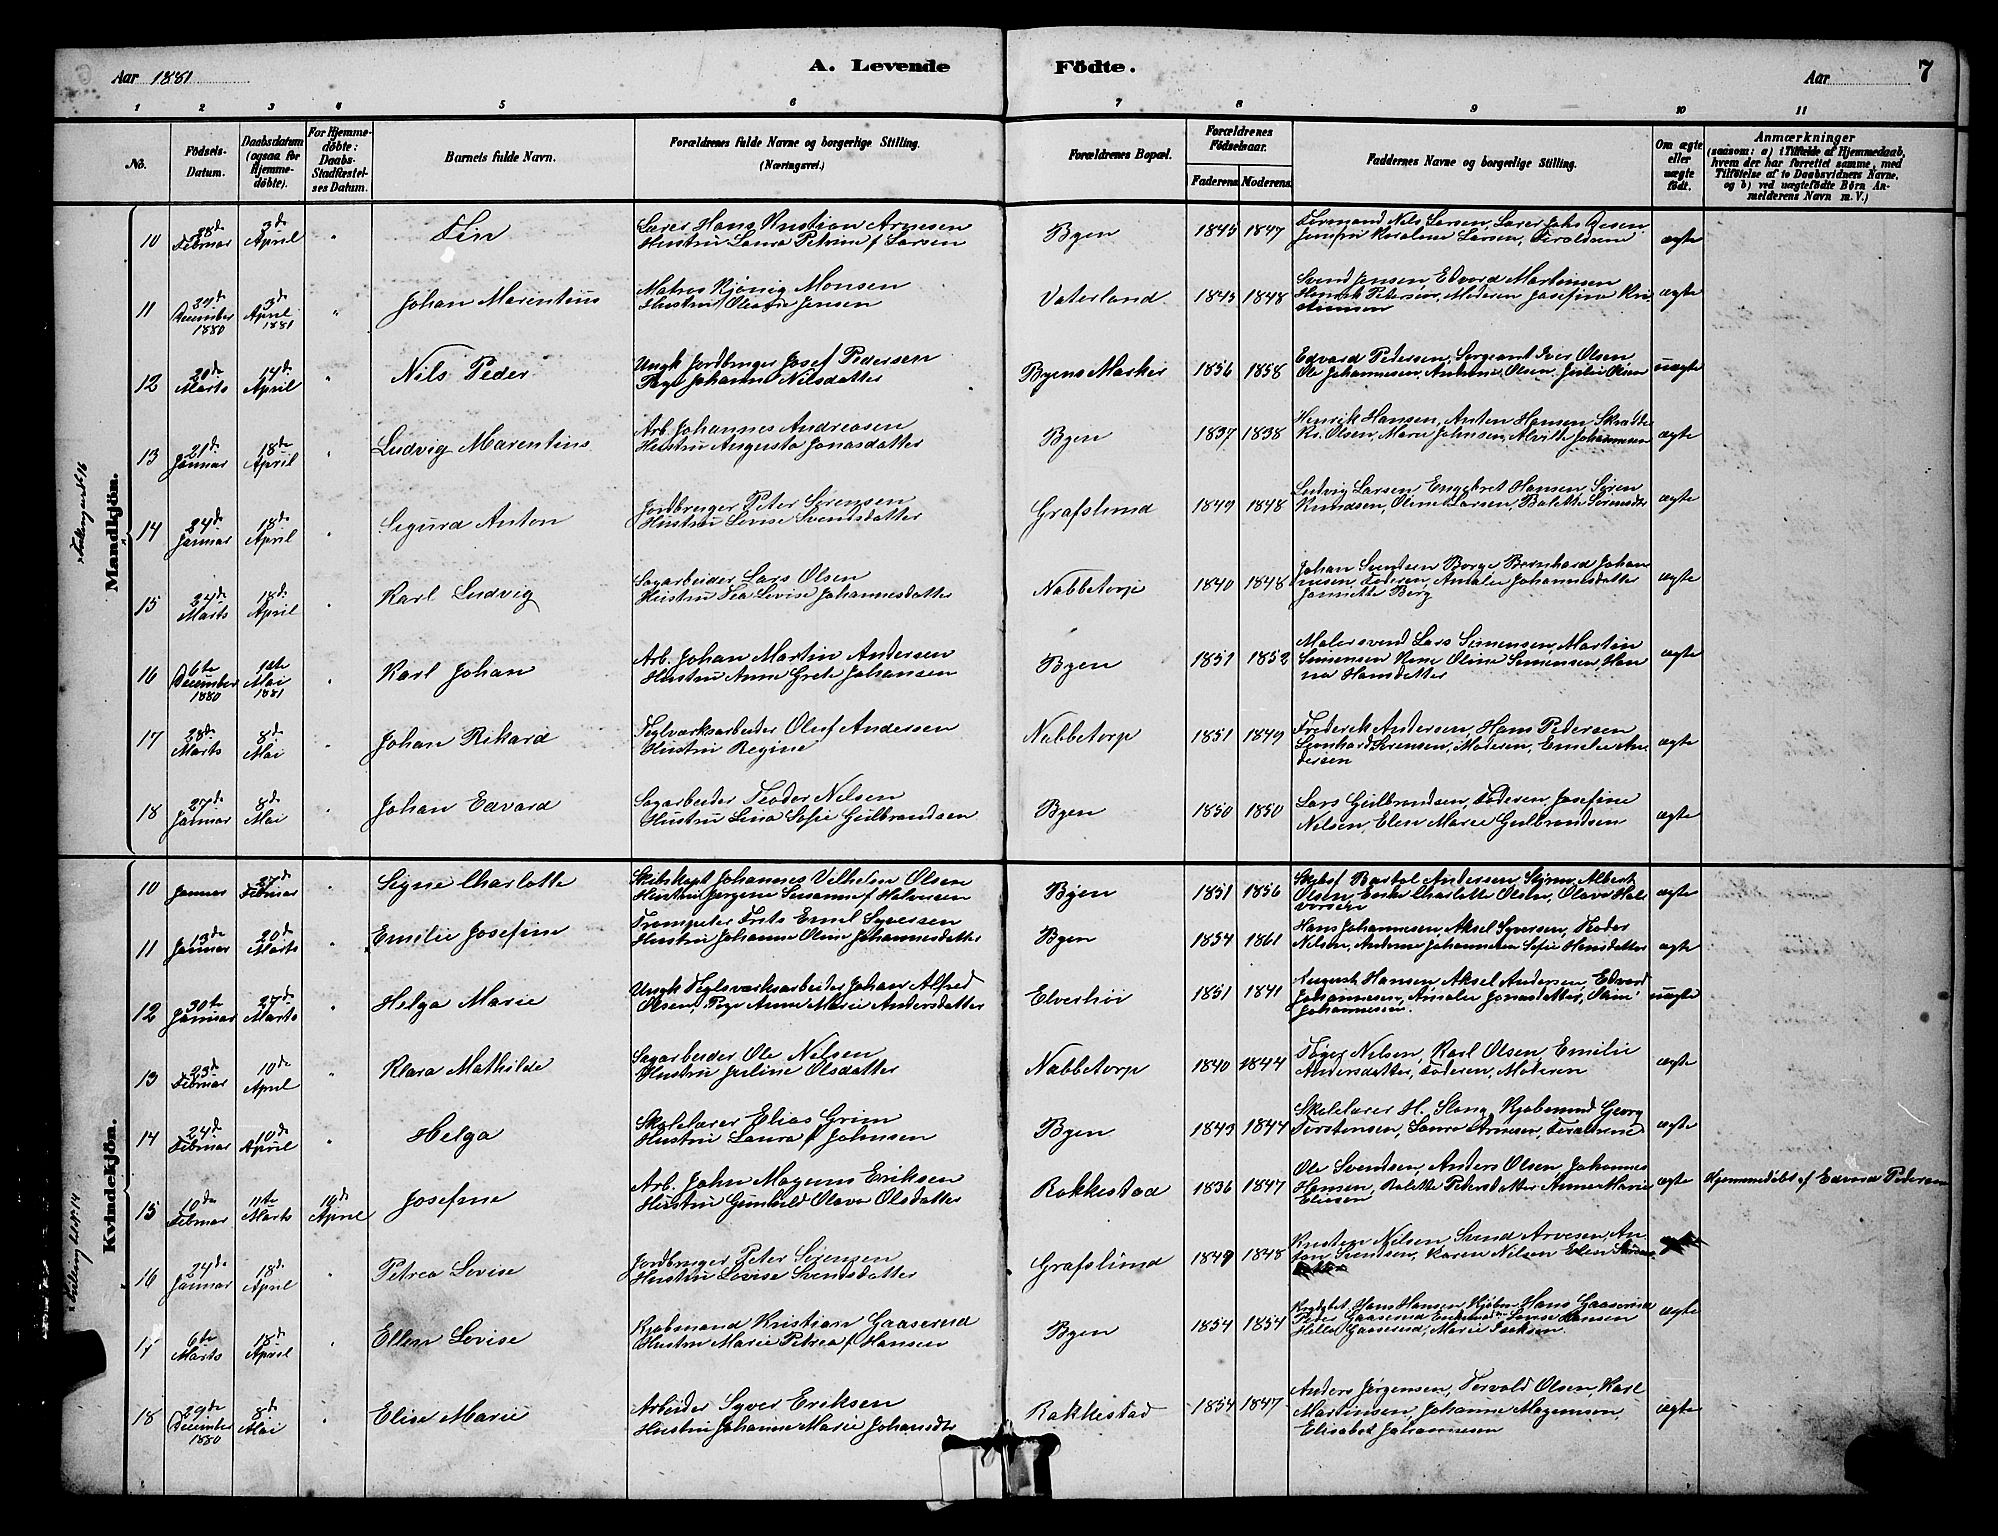 Aar 1881
A. Levende Födte.
Aar
7
1 2 3 4 5 6 7 8 9 10 11
No.
Födsels-Datum.
Daabsdatum (ogsaa for Hjemme-döbte).
For Hjemme-döbte: Daabs-Stadfæstelses Datum.
Barnets fulde Navn.
Forældrenes fulde Navne og borgerlige Stilling. (Næringsvei.)
Forældrenes Bopæl.
Forældrenes Födselsaar.
Faderens Moderens
Faddernes Navne og borgerlige Stilling.
Om ægte eller uægte födt.
Anmærkninger (saasom: a) i Tilfælde af Hjemmedaab, hvem der har forrettet samme, med Tilföielse af to Daabsvidners Navne, og b) ved uægtefödte Börn Anmelderens Navn m. V.)
Mandkjön.
10 28de Februar 3de April " Fin
Lærer Hans Kristian Arnesen
Hustru Laura Petrine f. Larsen
Byen 1845 1847
Nils Larsen, Lærer Johs
Larsen, Forældrene
ægte
11 27de December 1880 3de April 1881 " Johan Marentius
Matros Kjönig Monsen
Hustru Jensen
Vaterland 1845 1848
Svend Jensen, Edvard Martinsen
Henrik Petersen, Moderen, Josefine Kri
stiansen
ægte
12 20de Marts 17de April " Nils Peder
Ungk. Jordbruger Josef Pedersen
Pige Johanne Nilsdatter
Byens Marker 1856 1858
Edvard Pedersen, Sergeant Iver Olsen
Ole Johannesen, Olsen, Julie Olsen
uægte
13 21de Januar 18de April " Ludvig Marentius
Arb. Johannes Andreasen
Hustru Augusta Jonasdatter
Byen 1837 1838
Henrik Hansen, Anton Hansen
Kr. Olsen, Maren Johnsen, Johannesen
ægte
14 24de Januar 18de April " Sigurd Anton
Jordbruger Peter Sörensen
Hustru Lovise Svendsdatter
Grafslund 1849 1848
Ludvig Larsen, Engebret Hansen, Sören
Knudsen, Oline Larsen, Balette Sörensdtr
ægte
15 24de Marts 18de April " Karl Ludvig
Sagarbeider Lars Olsen
Hustru Tea Lovise Johannesdatter
Nabbetorp 1840 1848
Johan Svendsen Borge, Bernhard Johan
nesen, Faderen, Amalie Johannesdatter
Jannette Berg
ægte
16 6te December 1880 1ste Mai 1881 " Karl Johan
Arb. Johan Martin Andersen
Hustru Anne Grete Johansen
Byen 1851 1852
Malersvend Lars Simensen, Martin
Simensen, Oline Simensen, Han
na Hansdatter
ægte
17 28de Marts 8de Mai " Johan Rikard
Teglværksarbeider Oluf Andersen
Hustru Regine
Nabbetorp 1851 1849
Frederik Andersen, Hans Pedersen
Lenhard Sörensen, Moderen, Emelie An
dersen
ægte
18 27de Januar 8de Mai " Johan Edvard
Sagarbeider Teodor Nilsen
Hustru Lina Sofie Gulbrandsen
Byen 1850 1850
Lars Gulbrandsen, Faderen, Josefine
Nilsen, Elen Marie Gulbrandsen
ægte
Kvindekjön.
10 Januar 27de Februar " Signe Charlotte
Skibskapt. Johannes Vilhelm Olsen
Hustru Jörgine Susanne f. Halvorsen
Byen 1851 1856
Skibsf. Bartol Andersen, Styrm. Albert
Olsen, Enke Charlotte Olsen, Olava Hal
vorsen
ægte
11 13de Januar 20de Marts " Emilie Josefine
Trompeter Frits Emil Syversen
Hustru Johanne Oline Johannesdatter
Byen 1854 1861
Hans Johannesen, Aksel Syversen, Teodor
Nilsen, Andrine Johannesen, Sofie Hansdatter
ægte
12 30te Januar 27de Marts " Helga Marie
Ungk. Teglværksarbeider Johan Alfred
Olsen, Pige Anne Marie Andersdatter
Elverhöi 1851 1841
August Hansen, Aksel Andersen, Edvard
Johannesen, Amalie Jonasdatter,
Johannessen.
uægte
13 23de Februar 10de April " Klara Mathilde
Sagarbeider Ole Nilsen
Hustru Juline Olsdatter
Nabbetorp 1840 1844
Töger Nilsen, Karl Olsen, Emilie
Andersdatter, Faderen, Moderen
ægte
14 24de Februar 10de April " Helga
Skolelærer Elias Grim
Hustru Laura f. Johnsen
Byen 1843 1844
Skolelærer H. Stang, Kjöbmand Georg
Torstensen, Laura Arnesen, Forældrene
ægte
15 10de Februar 11te Marts 14de April Josefine
Arb. John Magnus Eriksen
Hustru Gunhild Olava Olsdatter
Rakkestad 1836 1847
Ole Svendsen, Anders Olsen, Johannes
Hansen, Balette Petersdatter, Anne Marie
Eliesen
ægte
Hjemmedöbt af Edvard Petersen
16 24de Januar 18de April " Petrea Lovise
Jordbruger Peter Sörensen
Hustru Lovise Svendsdatter
Grafslund 1849 1848
Kristian Nilsen, Svend Arvesen, An
ton Svendsen, Karen Nilsen, Elen
17 6te Marts 18de April " Ellen Lovise
Kjöbmand Kristian Gaaserud
Hustru Marie Petrea f. Hansen
Byen 1854 1854
Hans Hansen, Kjöbm. Hans Gaaserud
Peter Gaaserud, Lovise Hansen
Gaaserud, Marie Isaksen.
ægte
18 29de December 1880 8de Mai " Elise Marie
Arbeider Syver Eriksen
Hustru Johanne Marie Johansdtr
Rakkestad 1854 1847
Anders Jörgensen, Torvald Olsen, Karl
Martinsen, Johanne Magnussen,
Elisabet Johannesen
ægte